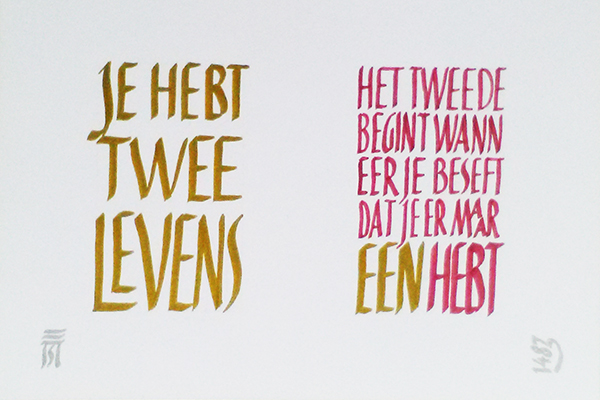 JE HEBT
TWEE
LEVENS
HET TWEEDE
BEGINT WANN
EER JE BESEFT
DAT JE ER MAAR
EEN HEBT